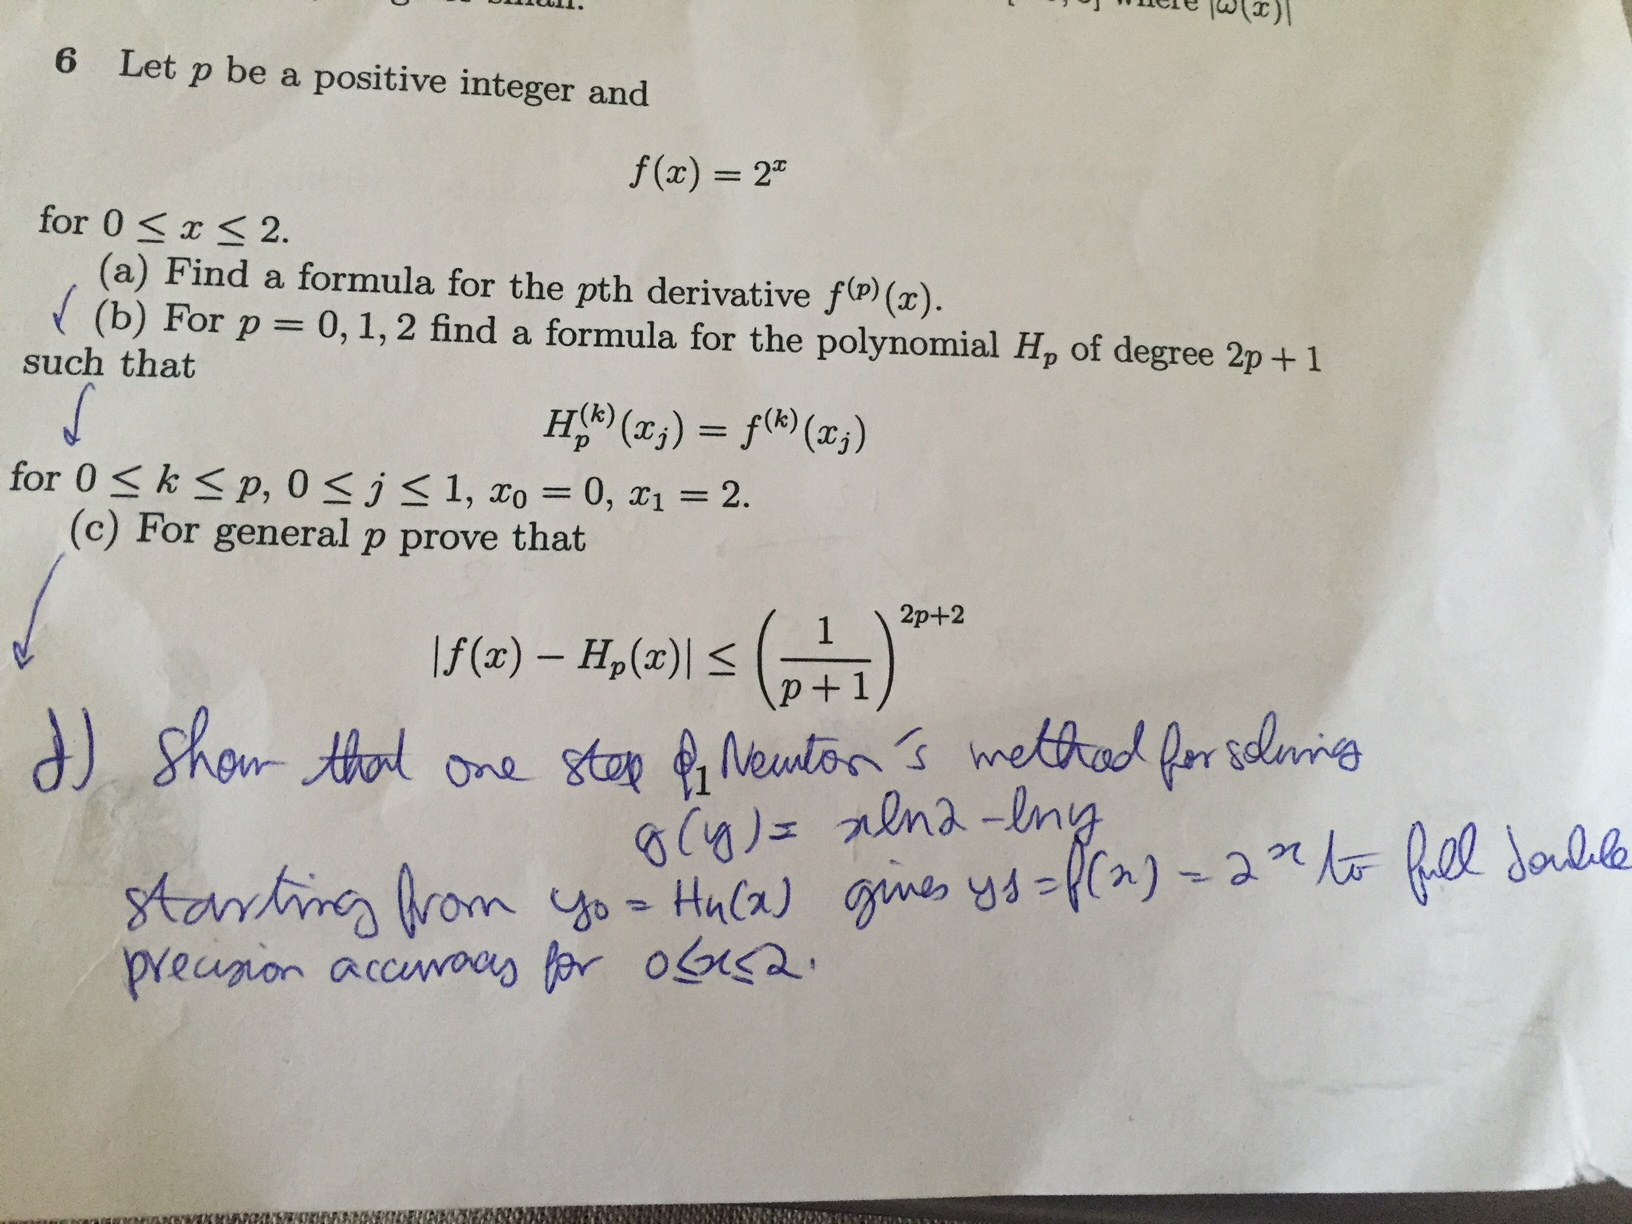 where |ω(x)|
6 Let p be a positive integer and
f(x) = 2^x
for 0 ≤ x ≤ 2.
(a) Find a formula for the pth derivative f^(p)(x).
(b) For p = 0, 1, 2 find a formula for the polynomial H_p of degree 2p + 1
such that
H_p^(k)(x_j) = f^(k)(x_j)
for 0 ≤ k ≤ p, 0 ≤ j ≤ 1, x_0 = 0, x_1 = 2.
(c) For general p prove that
|f(x) − H_p(x)| ≤ (1/(p + 1))^(2p+2)
d) Show that one step of Newton's method for solving
g(y) = x ln 2 - ln y
starting from y0 = H4(x) gives y1 = f(x) = 2^x to full double
precision accuracy for 0≤x≤2.